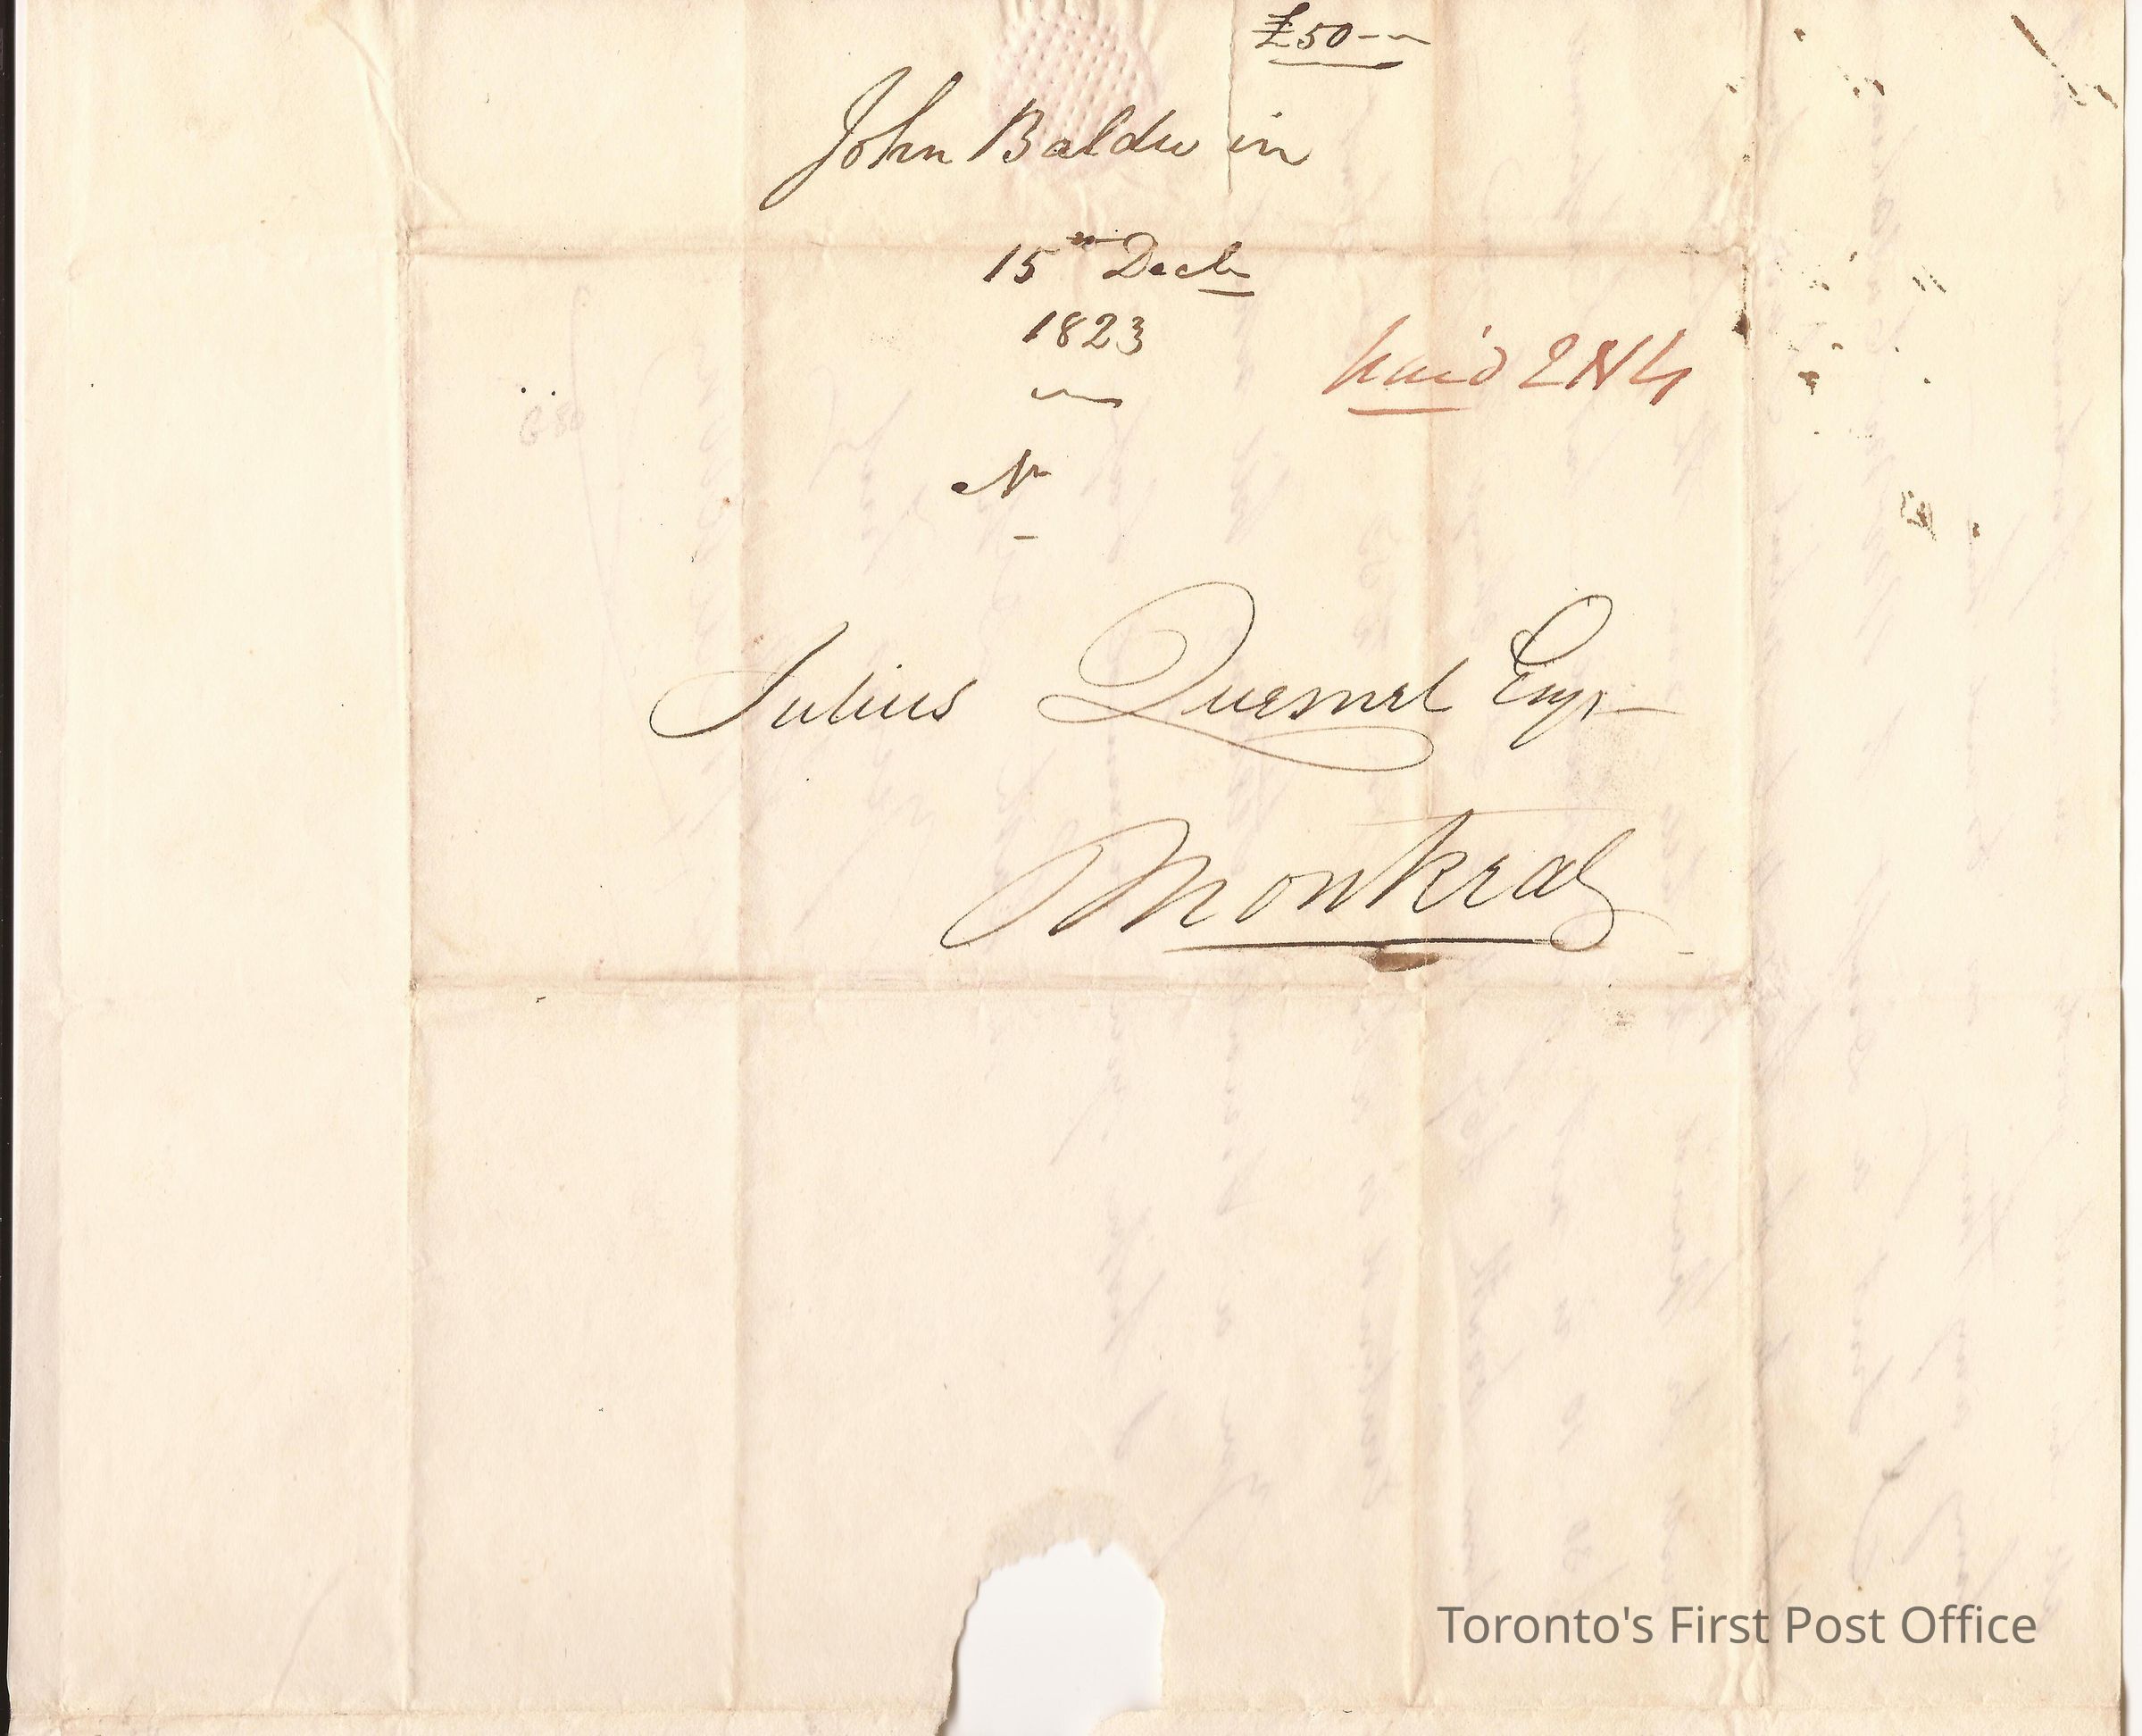 £50
John Baldwin
15th Decbr
1823
paid 2N4
N
Julius Quesnel Esqr
Montreal
Toronto's First Post Office